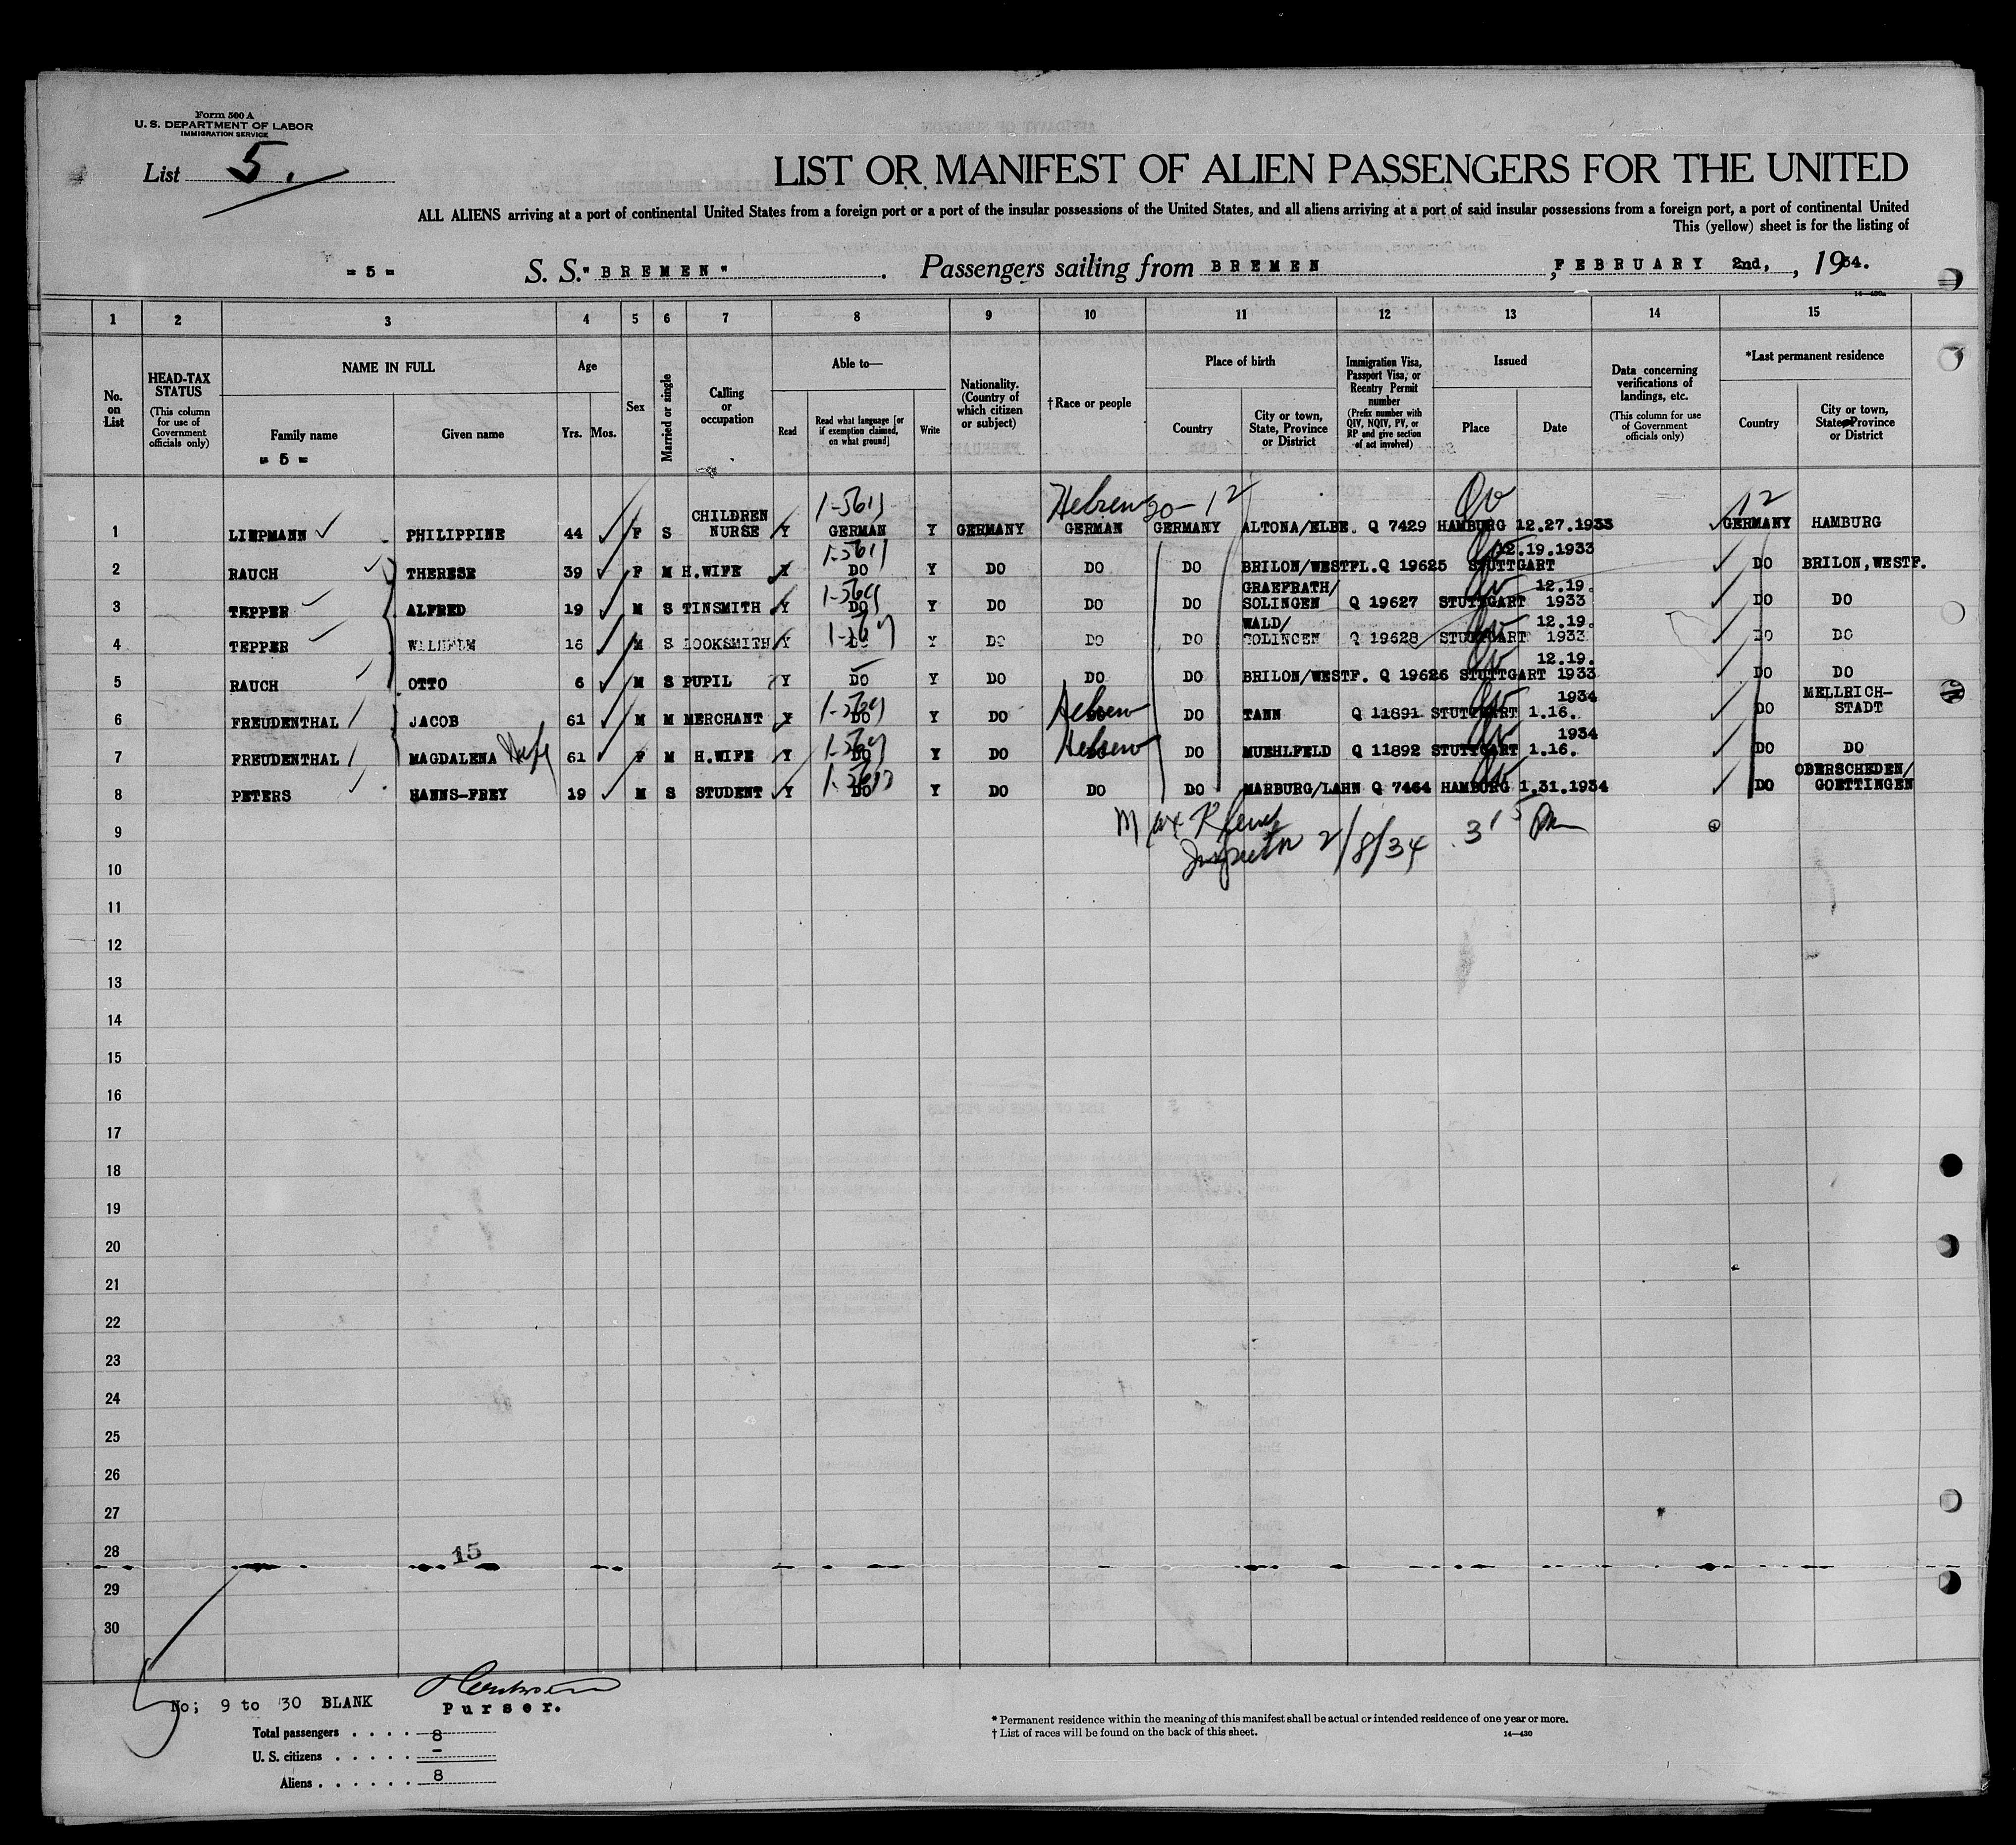 Form 500 A
U. S. DEPARTMENT OF LABOR
IMMIGRATION SERVICE
List 5.
LIST OR MANIFEST OF ALIEN PASSENGERS FOR THE UNITED
ALL ALIENS arriving at a port of continental United States from a foreign port or a port of the insular possessions of the United States, and all aliens arriving at a port of said insular possessions from a foreign port, a port of continental United
This (yellow) sheet is for the listing of
= 5 = S. S. "BREMEN" . Passengers sailing from BREMEN , FEBRUARY 2nd, , 1934.
1 2 3 4 5 6 7 8 9 10 11 12 13 14 15
No. on List
HEAD-TAX STATUS (This column for use of Government officials only)
NAME IN FULL
Family name
= 5 =
Given name
Age
Yrs. Mos.
Sex
Married or single
Calling or occupation
Able to—
Read
Read what language [or if exemption claimed, on what ground]
Write
Nationality. (Country of which citizen or subject)
† Race or people
Place of birth
Country
City or town, State, Province or District
Immigration Visa, Passport Visa, or Reentry Permit number (Prefix number with QIV, NQIV, PV, or RP and give section of act involved)
Issued
Place
Date
Data concerning verifications of landings, etc. (This column for use of Government officials only)
*Last permanent residence
Country
City or town, State Province or District
1 LIEPMANN PHILIPPINE 44 F S CHILDREN NURSE Y GERMAN Y GERMANY Hebrew GERMAN 30-12 GERMANY ALTONA/ELBE. Q 7429 HAMBURG 12.27.1933 12 GERMANY HAMBURG
2 RAUCH THERESE 39 F M H.WIFE Y DO Y DO DO DO BRILON/WESTFL. Q 19625 STUTTGART 12.19.1933 DO BRILON, WESTF.
3 TEPPER ALFRED 19 M S TINSMITH Y DO Y DO DO DO GRAEFRATH/ SOLINGEN Q 19627 STUTTGART 12.19. 1933 DO DO
4 TEPPER WILHELM 16 M S LOOKSMITH Y DO Y DO DO DO WALD/ SOLINGEN Q 19628 STUTTGART 12.19. 1933 DO DO
5 RAUCH OTTO 6 M S PUPIL Y DO Y DO DO DO BRILON/WESTF. Q 19626 STUTTGART 12.19. 1933 DO DO
6 FREUDENTHAL JACOB 61 M M MERCHANT Y DO Y DO Hebrew DO TANN Q 11891 STUTTGART 1.16. 1934 DO MELLRICH-STADT
7 FREUDENTHAL MAGDALENA Wife 61 F M H.WIFE Y DO Y DO Hebrew DO MUEHLFELD Q 11892 STUTTGART 1.16. 1934 DO DO
8 PETERS HANNS-FREY 19 M S STUDENT Y DO Y DO DO DO MARBURG/LAHN Q 7464 HAMBURG 1.31.1934 DO OBERSCHEDEN/ GOETTINGEN
9 Max
10 Inspector 2/8/34 3 15 Pm
11
12
13
14
15
16
17
18
19
20
21
22
23
24
25
26
27
28 15
29
30
No; 9 to 30 BLANK
Purser.
Total passengers . . . . 8
U. S. citizens . . . . . -
Aliens . . . . . . 8
* Permanent residence within the meaning of this manifest shall be actual or intended residence of one year or more.
† List of races will be found on the back of this sheet.
14—430